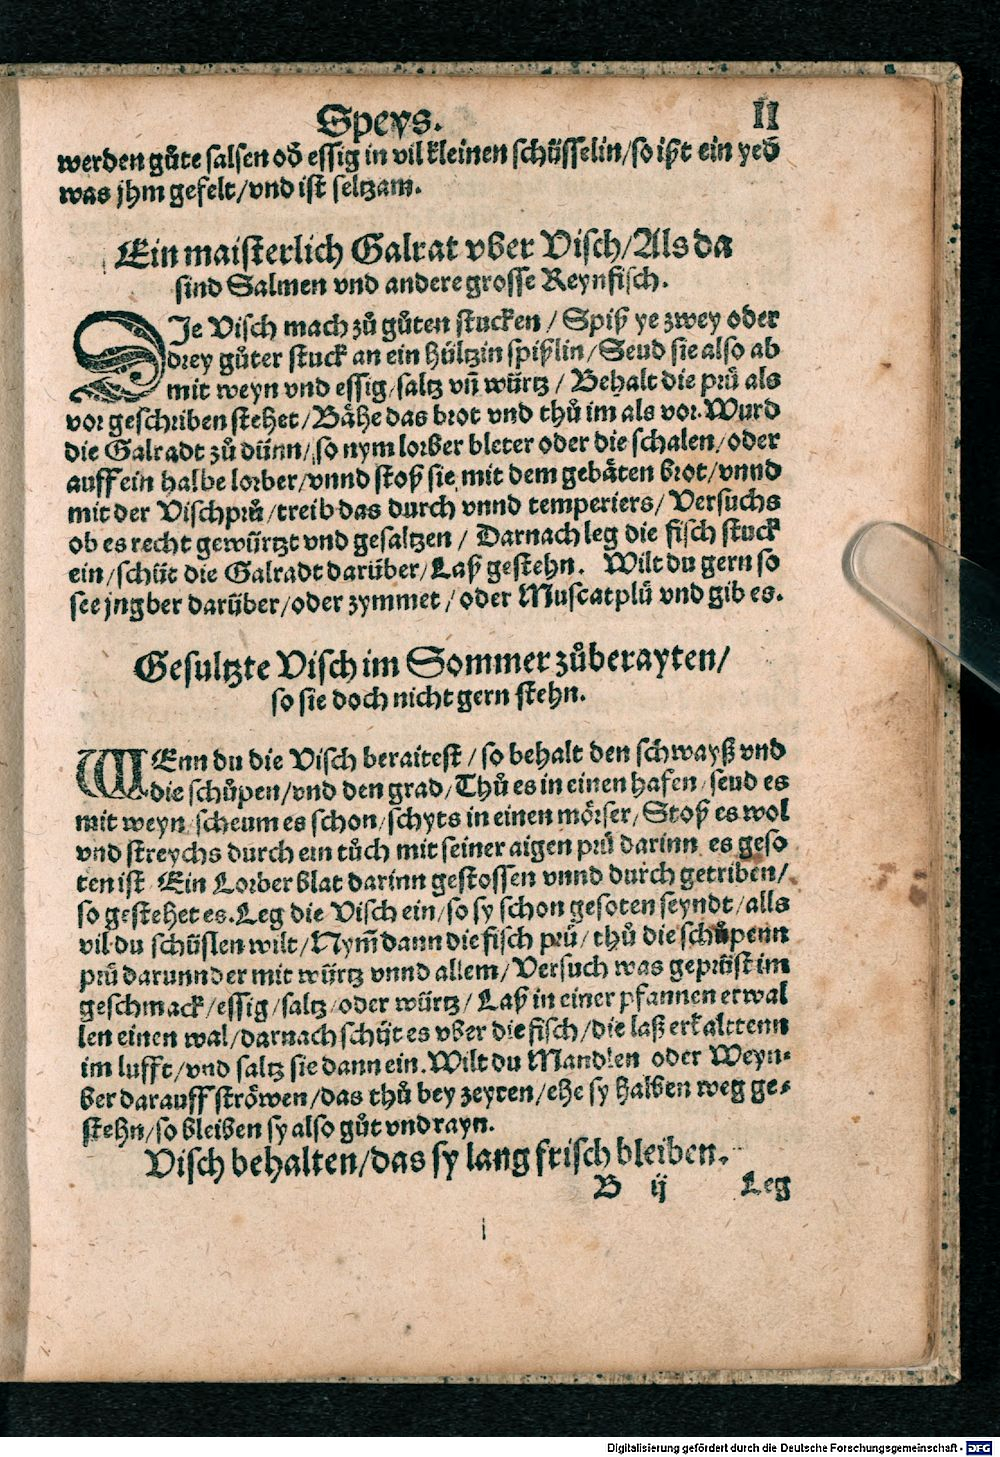 Speys. II
werden gůte salsen oď essig in vil kleinen schüsselin/so ißt ein yeď
was jhm gefelt/vnd ist seltzam.
Ein maisterlich Galrat vber Visch/Als da
sind Salmen vnd andere grosse Reynfisch.
DJe Visch mach zů gůten stucken / Spiß ye zwey oder
drey gůter stuck an ein hültzin spißlin/Seud sie also ab
mit weyn vnd essig/saltz vñ würtz / Behalt die prü als
vor geschriben stehet/Bähe das brot vnd thů im als vor. Wurd
die Galradt zů dünn/so nym lorber bleter oder die schalen/oder
auff ein halbe lorber/vnnd stoß sie mit dem gebäten brot/vnnd
mit der Vischprü/treib das durch vnnd temperiers/ Versuchs
ob es recht gewürtzt vnd gesaltzen / Darnach leg die fisch stuck
ein/schüt die Galradt darüber/Laß gestehn. Wilt du gern so
see jngber darüber/oder zymmet/oder Muscatplü vnd gib es.
Gesultzte Visch im Sommer zůberayten/
so sie doch nicht gern stehn.
WEnn du die Visch beraitest/so behalt den schwayß vnd
die schůpen/vnd den grad/Thů es in einen hafen/seud es
mit weyn/scheum es schon/schyts in einen mörser/Stoß es wol
vnd streychs durch ein tůch mit seiner aigen prü darinn es geso
ten ist Ein Lorber blat darinn gestossen vnnd durch getriben/
so gestehet es. Leg die Visch ein/so sy schon gesoten seyndt/alls
vil du schüslen wilt/Nym̃ dann die fisch prü/thů die schůpenn
prü darunnder mit würtz vnnd allem/Versuch was geprüst im
geschmack/essig/saltz/oder würtz/Laß in einer pfannen erwal
len einen wal/darnach schüt es vber die fisch/die laß erkalttenn
im lufft/vnd saltz sie dann ein. Wilt du Mandlen oder Weyn⸗
ber darauff ströwen/das thů bey zeyten/ehe sy halben weg ge⸗
stehn/so bleiben sy also gůt vnd rayn.
Visch behalten/das sy lang frisch bleiben.
B ij Leg
Digitalisierung gefördert durch die Deutsche Forschungsgemeinschaft - DFG